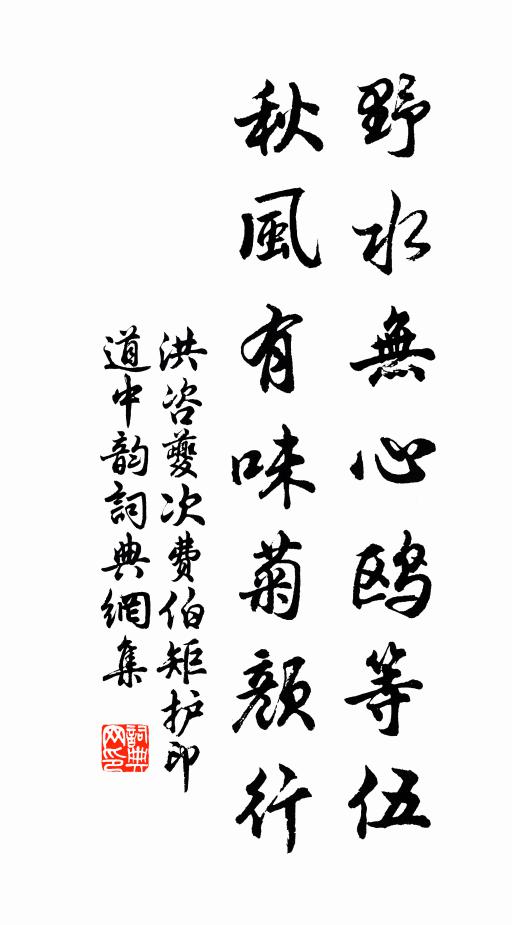 野水無心鸥等伍
秋風有味菊顏行
洪咨夔次費伯矩护印
道中韵詞典網集
詞典网印